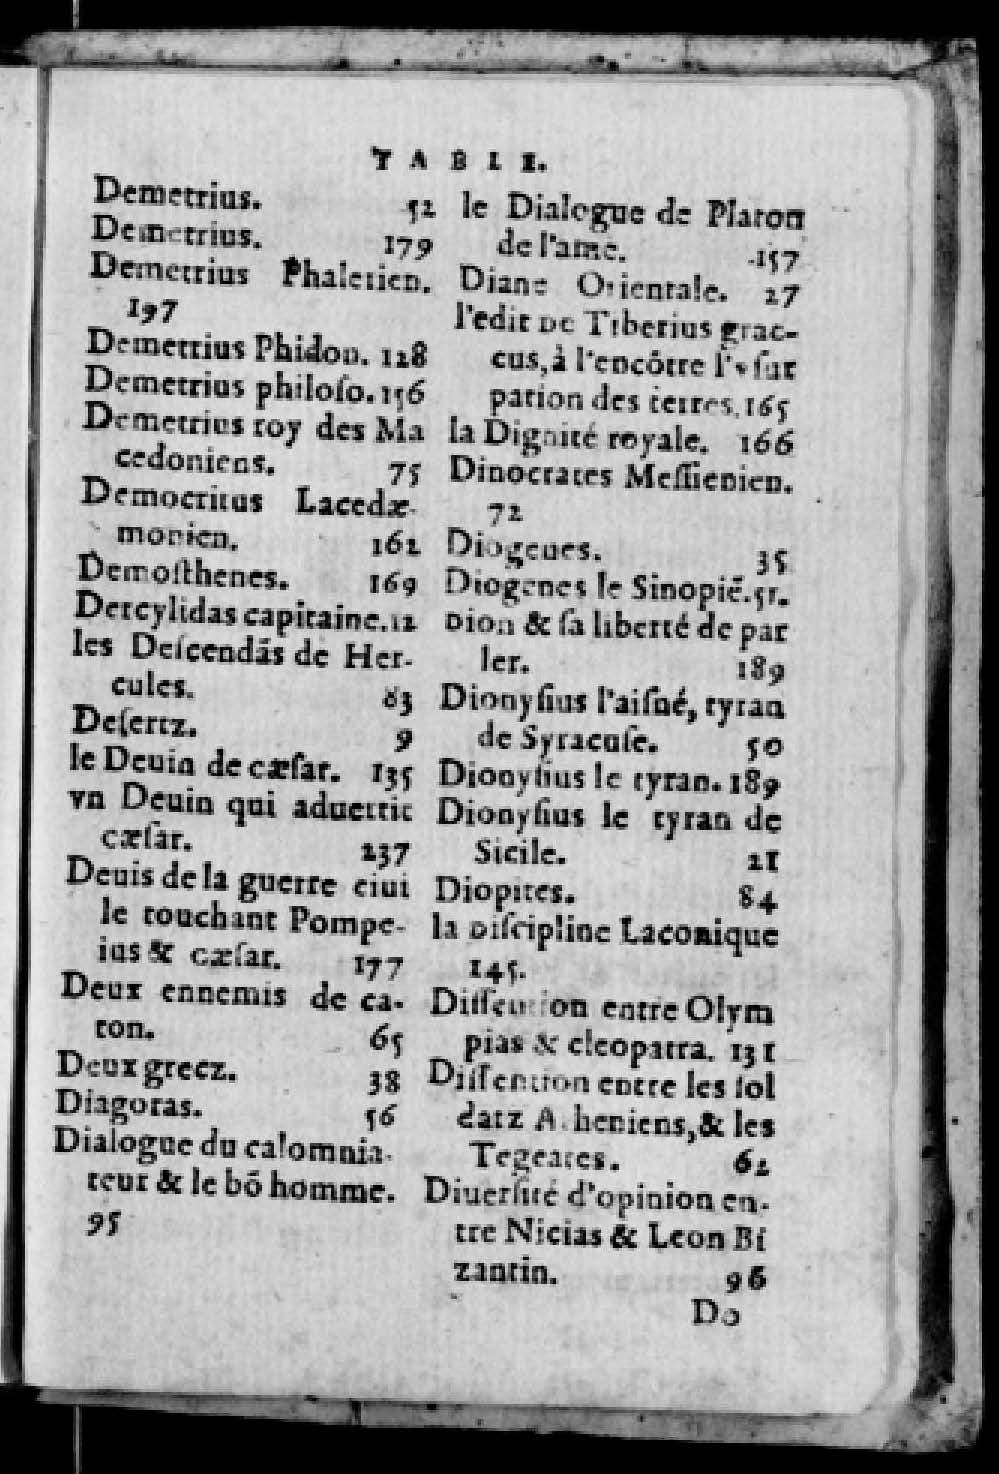 TABLE.
Demetrius. 52
Demetrius. 179
Demetrius Phalerien.
197
Demetrius Phidon. 128
Demetrius philoſo. 156
Demetrius roy des Ma
cedoniens. 75
Democritus Lacedæ-
monien. 162
Demoſthenes. 169
Dercylidas capitaine. 12
les Deſcendãs de Her-
cules. 83
Deſertz. 9
le Deuin de cæſar. 135
vn Deuin qui aduertit
cæſar. 237
Deuis de la guerre ciui
le touchant Pompe-
ius & cæſar. 177
Deux ennemis de ca-
ton. 65
Deux grecz. 38
Diagoras. 56
Dialogue du calomnia-
teur & le bõ homme.
95
le Dialogue de Platon
de l'ame. 157
Diane Orientale. 27
l'edit de Tiberius grac-
cus, à l'encôtre l'vſur
pation des terres, 165
la Dignité royale. 166
Dinocrates Meſſienien.
72
Diogenes. 35
Diogenes le Sinopiẽ. 51.
Dion & ſa liberté de par
ler. 189
Dionyſius l'aiſné, tyran
de Syracuſe. 50
Dionyſius le tyran. 189
Dionyſius le tyran de
Sicile. 21
Diopites. 84
la Diſcipline Laconique
145.
Diſſention entre Olym
pias & cleopatra. 131
Diſſention entre les ſol
datz Atheniens, & les
Tegeates. 62
Diuerſité d'opinion en-
tre Nicias & Leon Bi
zantin. 96
Do